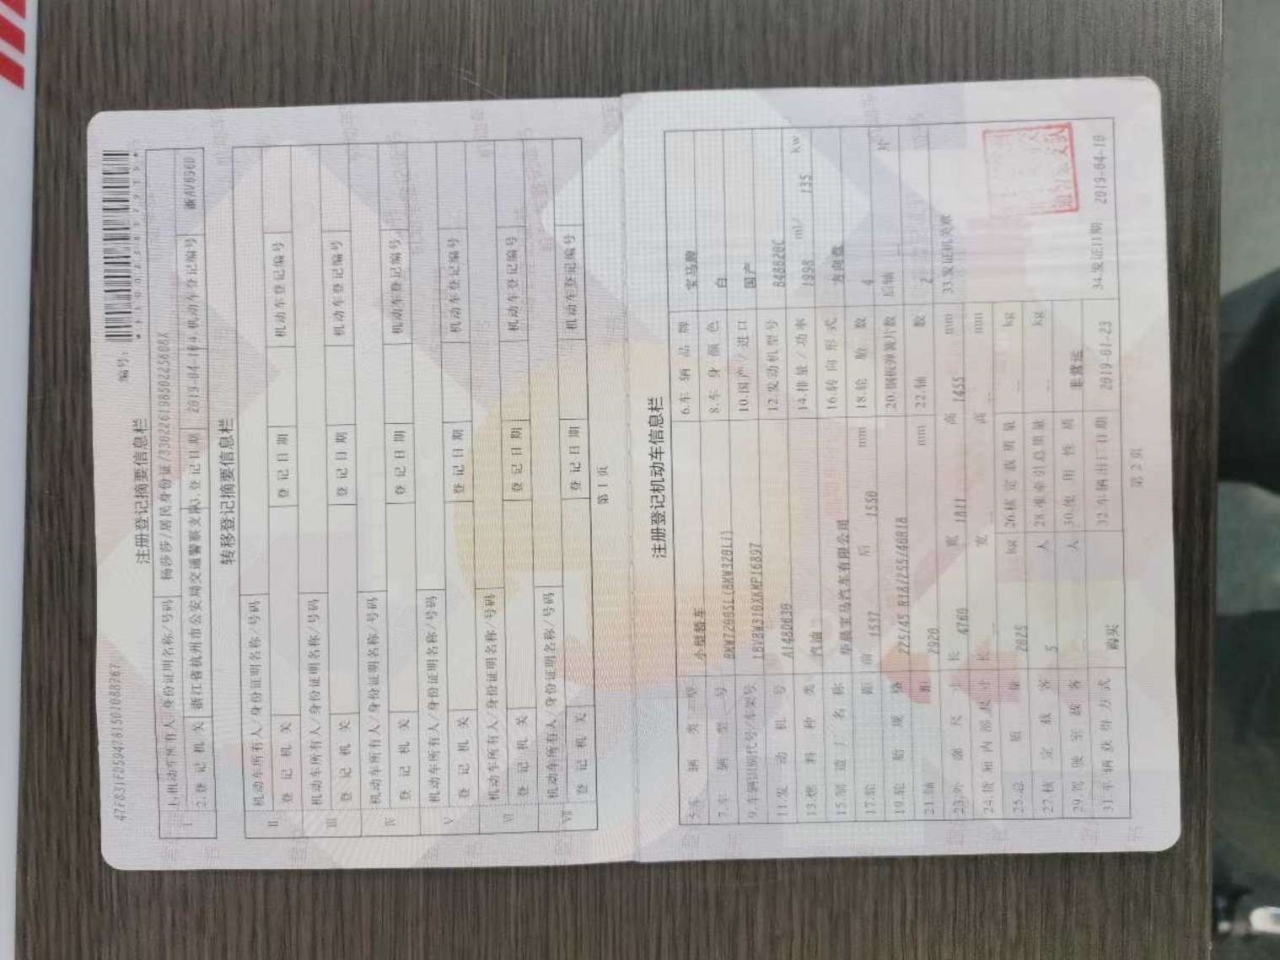 47F831FD594781501088767
编号:
注册登记摘要信息栏
I 1.机动车所有人/身份证明名称/号码 杨莎莎/居民身份证/33022619850225608X
2.登记机关 浙江省杭州市公安局交通警察支队 3.登记日期 2019-04-10 4.机动车登记编号
转移登记摘要信息栏
II 机动车所有人/身份证明名称/号码
登记机关 登记日期 机动车登记编号
III 机动车所有人/身份证明名称/号码
登记机关 登记日期 机动车登记编号
IV 机动车所有人/身份证明名称/号码
登记机关 登记日期 机动车登记编号
V 机动车所有人/身份证明名称/号码
登记机关 登记日期 机动车登记编号
VI 机动车所有人/身份证明名称/号码
登记机关 登记日期 机动车登记编号
VII 机动车所有人/身份证明名称/号码
登记机关 登记日期 机动车登记编号
第 1 页
注册登记机动车信息栏
5.车辆类型 小型轿车 6.车辆品牌 宝马牌
7.车辆型号 8.车身颜色 白
9.车辆识别代号/车架号 10.国产/进口 国产
11.发动机号 A1480630 12.发动机型号 B48B20C
13.燃料种类 汽油 14.排量/功率 1998 ml/ 135 kw
15.制造厂名称 华晨宝马汽车有限公司 16.转向形式 方向盘
17.轮距 前 1537 后 1550 mm 18.轮胎数 4
19.轮胎规格 225/45 R18/255/40R18 20.钢板弹簧片数 后轴 片
21.轴距 2920 mm 22.轴数 2
23.外廓尺寸 长 4760 宽 1811 高 1455 mm 33.发证机关章
24.货厢内部尺寸 长 宽 高 mm
25.总质量 2025 kg 26.核定载质量 kg
27.核定载客 5 人 28.准牵引总质量 kg
29.驾驶室载客 人 30.使用性质 非营运
31.车辆获得方式 购买 32.车辆出厂日期 2019-01-23 34.发证日期 2019-04-10
第 2 页